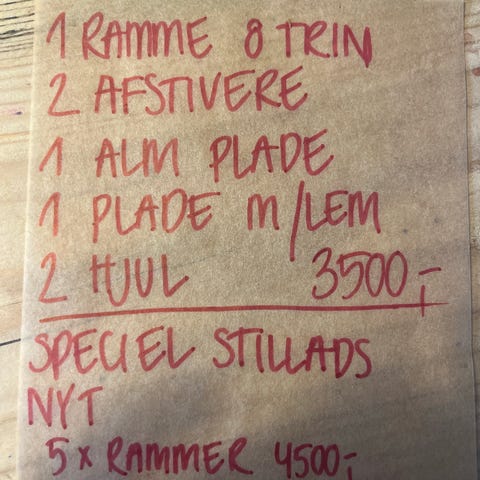 1 RAMME 8 TRIN
2 AFSTIVERE
1 ALM PLADE
1 PLADE M/LEM
2 HJUL 3500,-
SPECIEL STILLADS
NYT
5 x RAMMER 4500,-